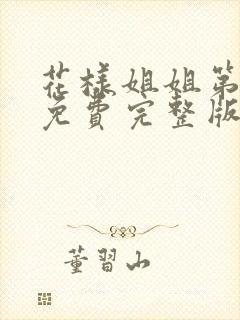 花样姐姐第
免費完整版
董習山